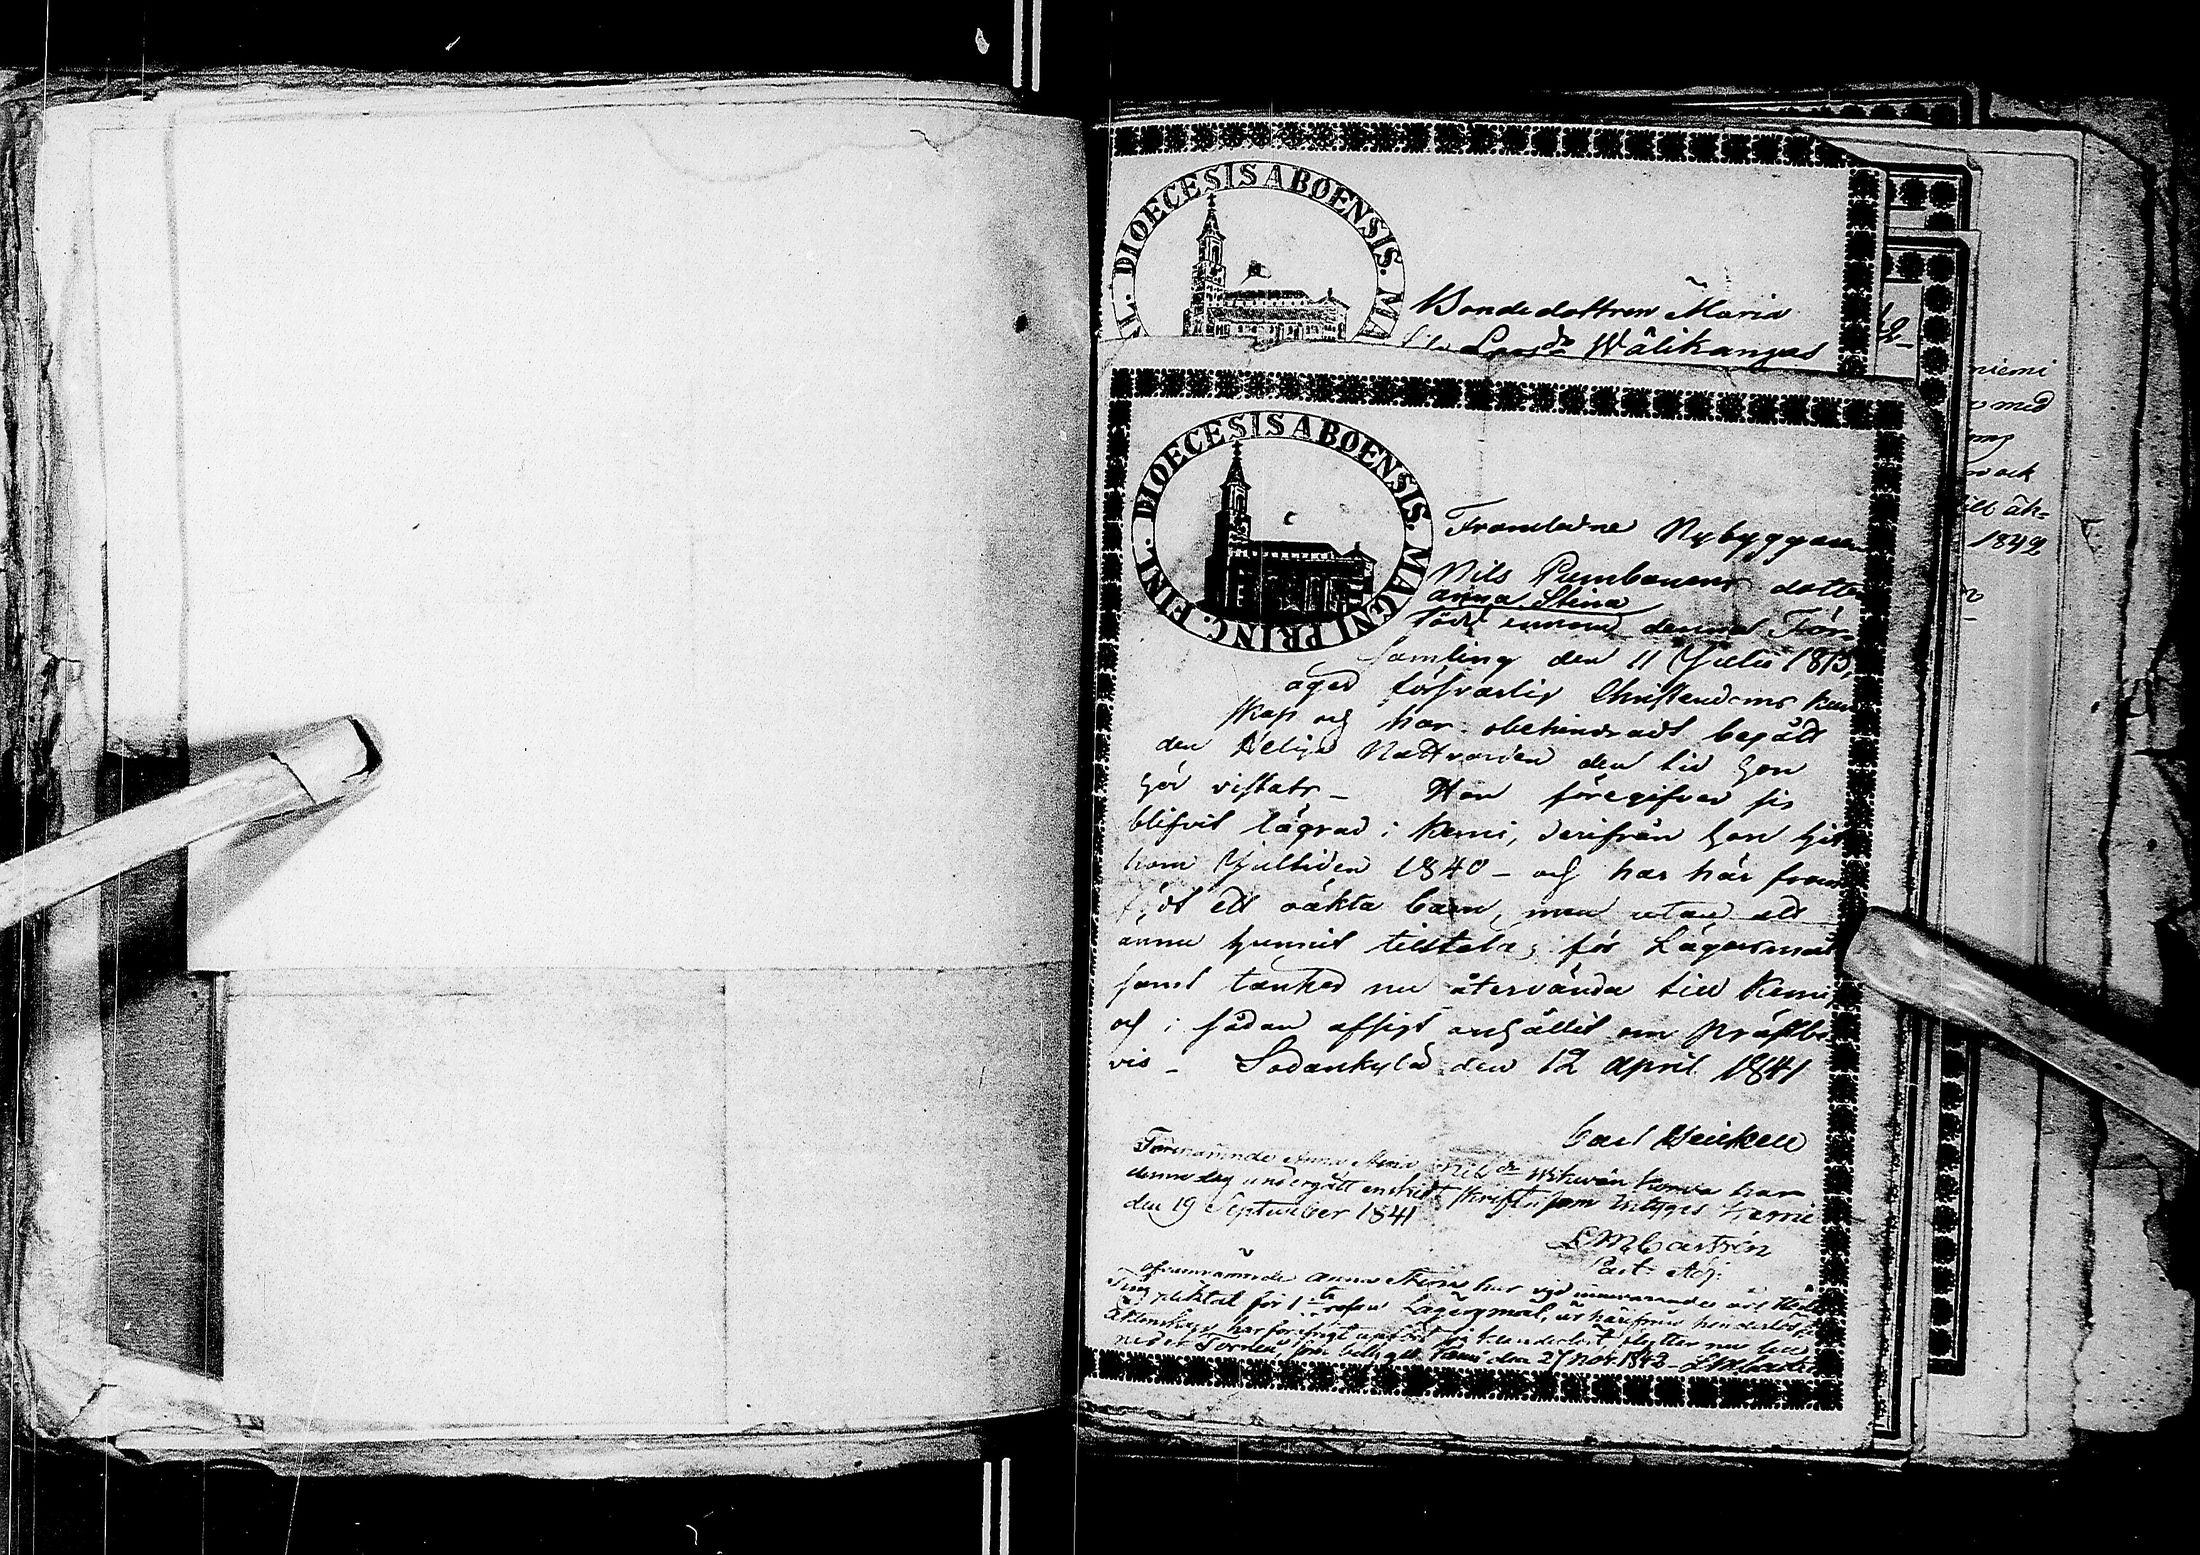 DIOECESIS ABOENSIS. MA
Bondedottren Maria
Larsdr Wälikangas
niemi
med
och
till åh=
1842
DIOECESIS ABOENSIS. MAGNI PRINC. FINL.
Framledne Nybyggaren
Nils Pumbanens dotter
Anna Stina
född denna För
samling den 11 Julii 1813,
äged försvarlig Christendoms kun
skap och har obehindradt begått
den Helige Nattvarden den tid hon
här vistats _ Hon föregifver sig
blifvit lägrad i Kemi, derifrån hon hit
kom Jultiden 1840 _ och har här fram
födt ett oäkta barn, men utan att
ännu hunnit tilltalas för Lägersmål
samt tänker nu återvända till Kemi,
och i sådan afsigt anhållit om Prästbe
vis _ Sodankylä den 12 April 1841
Carl Heickell
Förenämnde Anna Stina Nilsdr
denna dag undergått enskildt skriftn som intygas Kemi
den 19 September 1841
L M Castrén
Past. Adj.
ofvannämnde Anna Stina har vid innevarande års Höste
Ting pliktat för 1sta resan Lägersmål, är härifrån hinderlös till
Äktenskap, har för öfrigt upfört sig klanderlöst, flyttar nu till
neder Torneå, som betygar Kemi den 27 Nov. 1842 _ L M Castrén